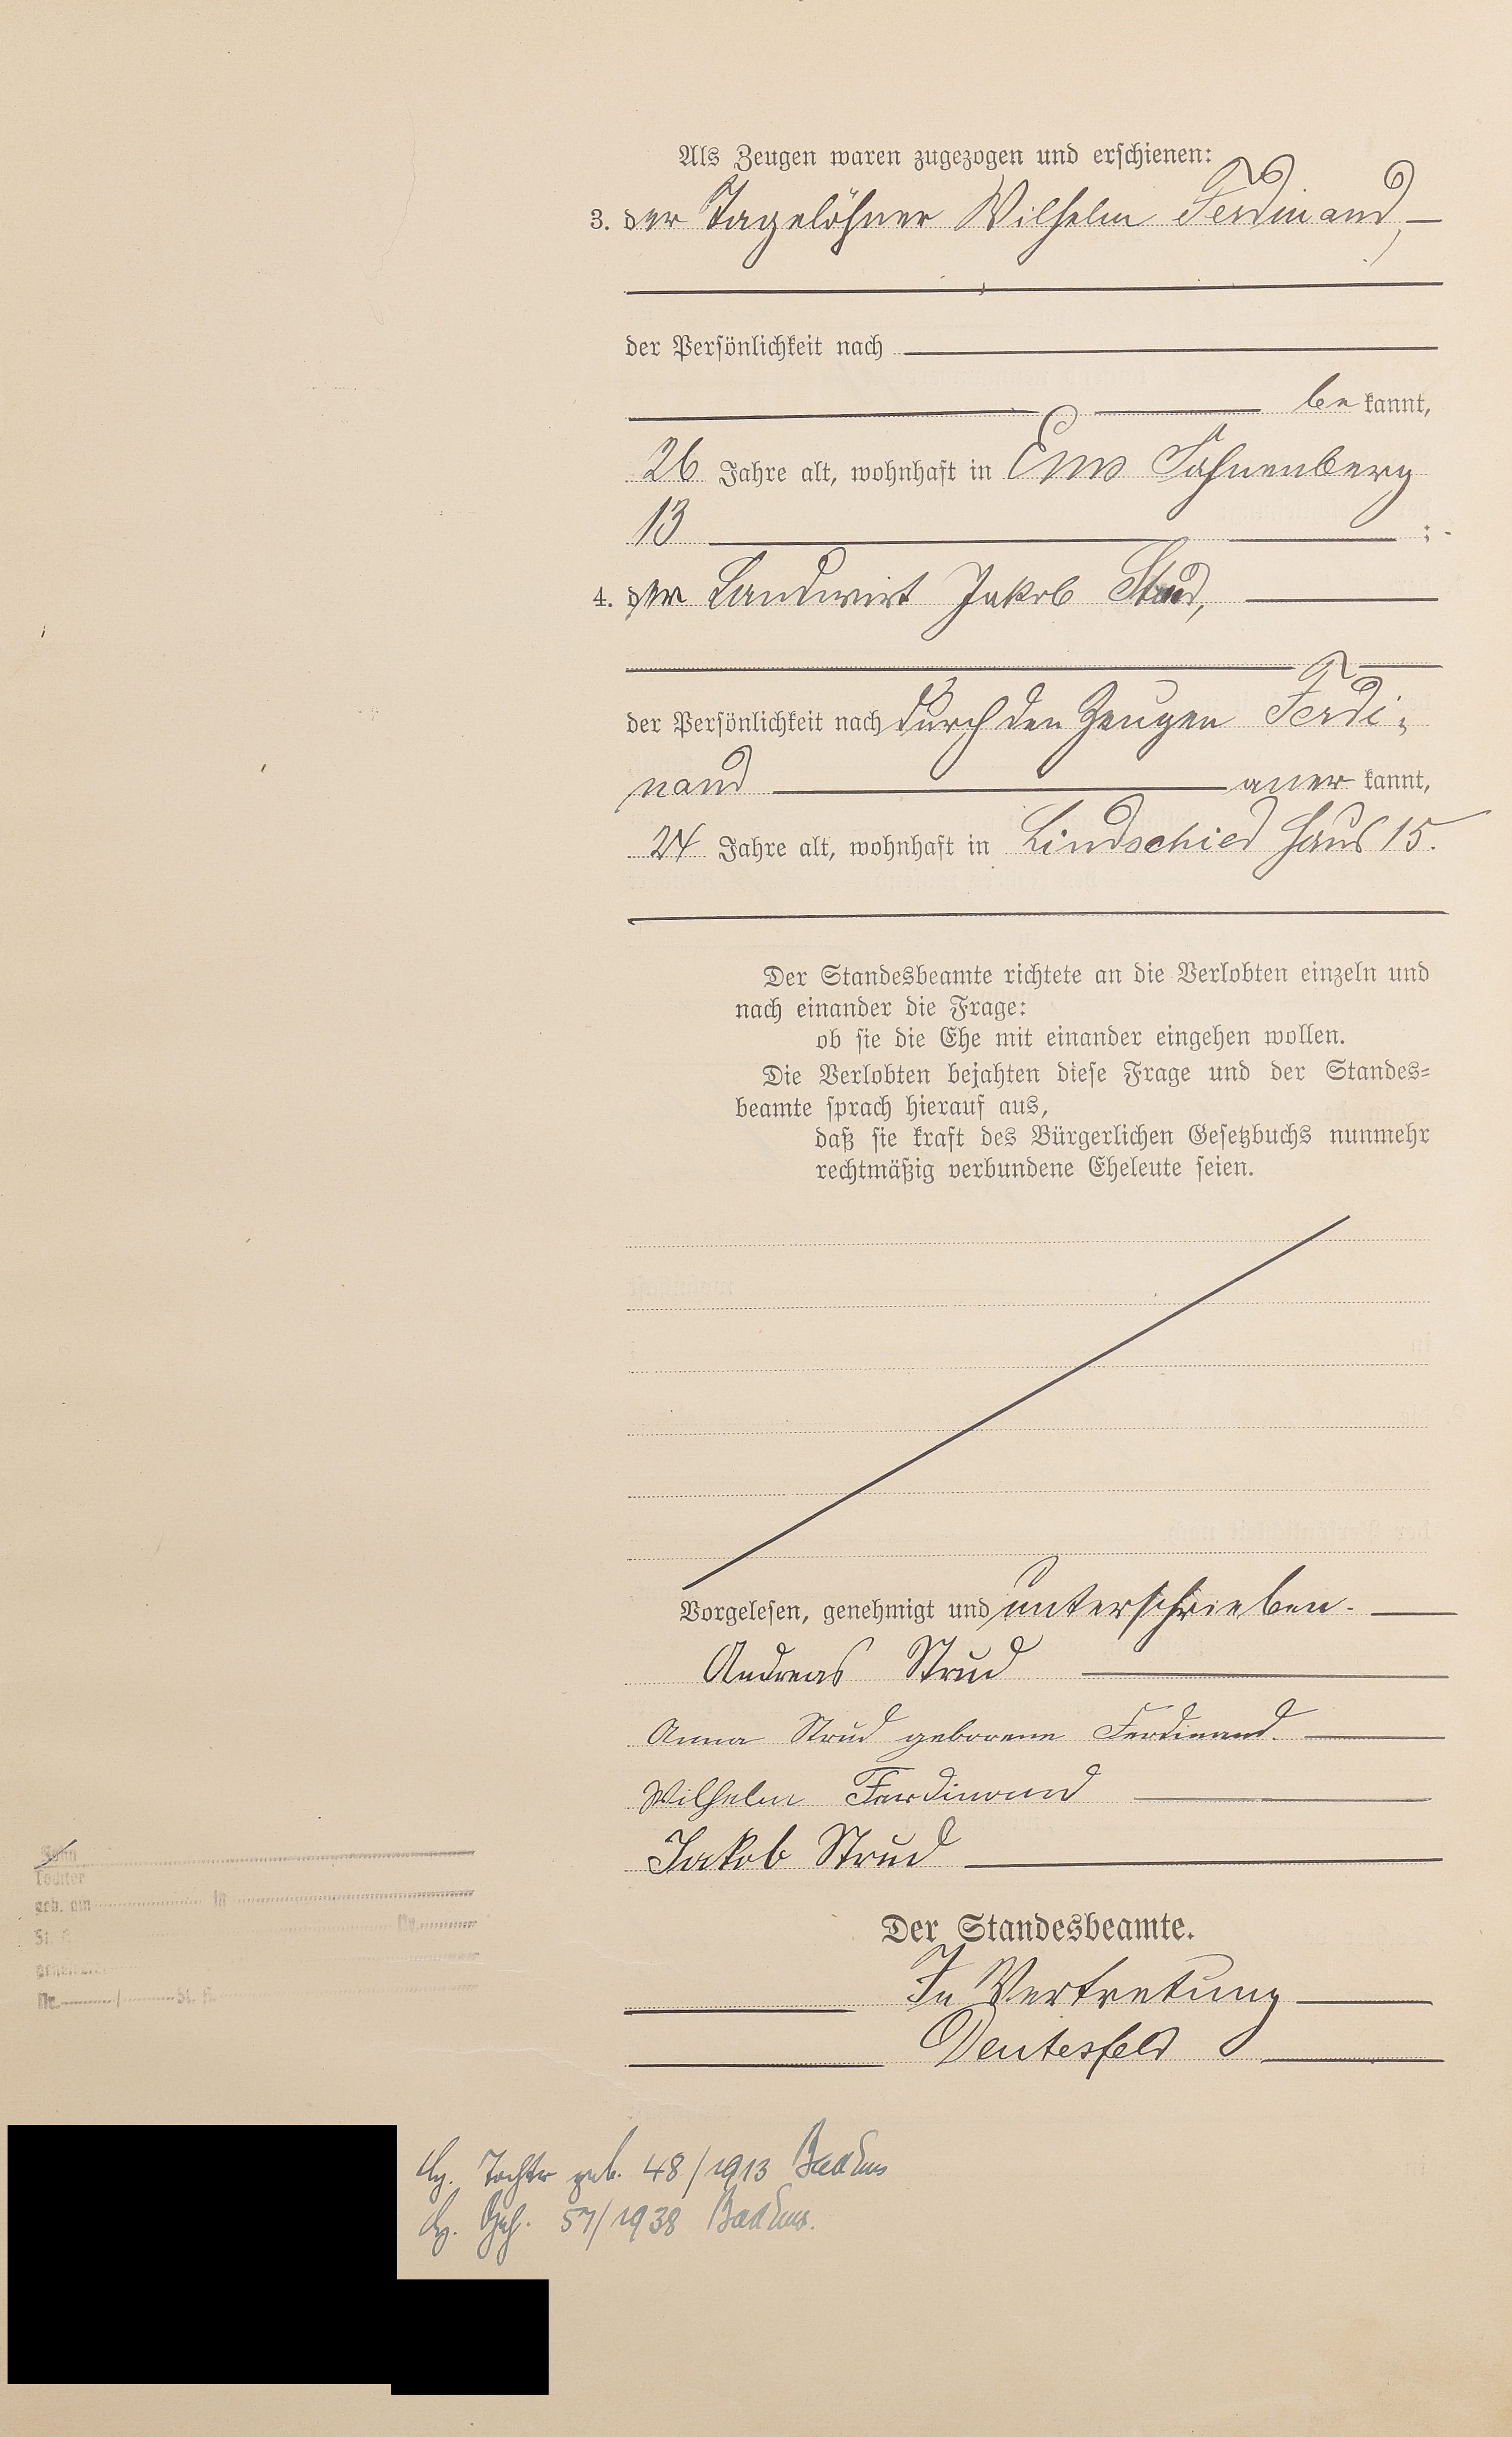 Als Zeugen waren zugezogen und erschienen:
3. der Tagelöhner Wilhelm Ferdinand,
der Persönlichkeit nach
be kannt,
26 Jahre alt, wohnhaft in Ems Fahnenberg
13 ;
4. der Landwirt Jakob Strud,
der Persönlichkeit nach durch den Zeugen Ferdi-
nand aner kannt,
24 Jahre alt, wohnhaft in Lindschied Haus 15.
Der Standesbeamte richtete an die Verlobten einzeln und
nach einander die Frage:
ob sie die Ehe mit einander eingehen wollen.
Die Verlobten bejahten diese Frage und der Standes-
beamte sprach hierauf aus,
daß sie kraft des Bürgerlichen Gesetzbuchs nunmehr
rechtmäßig verbundene Eheleute seien.
Vorgelesen, genehmigt und unterschrieben.
Andreas Strud
Anna Strud geborene Ferdinand.
Wilhelm Ferdinand
Jakob Strud
Der Standesbeamte.
In Vertretung
Deutesfeld
Sohn
Tochter
geb. am in
St. A. Nr.
Nr. / St. A.
Tochter geb. 48/1913 Bad Ems
57/1938 Bad Ems.